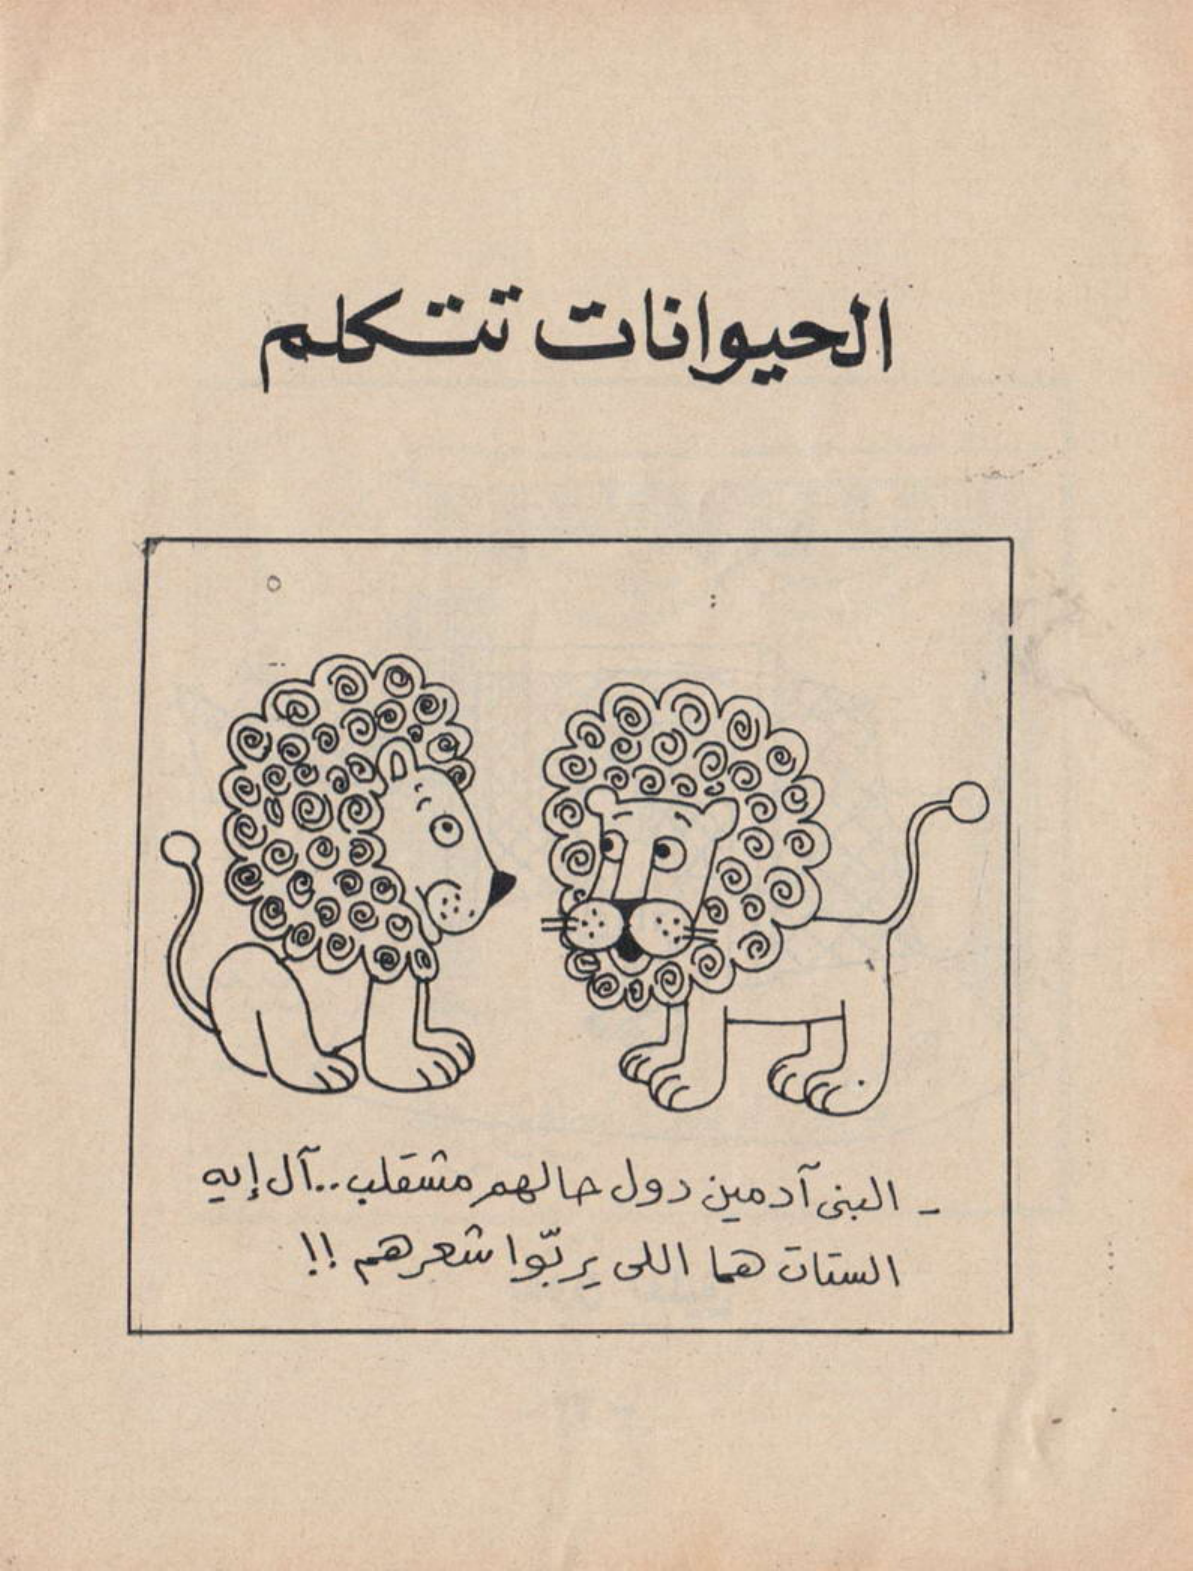 الحيوانات تتكلم
- البنى آدمين دول حالهم متشقلب..آل إيه
الستات هما اللى يربّوا شعرهم !!